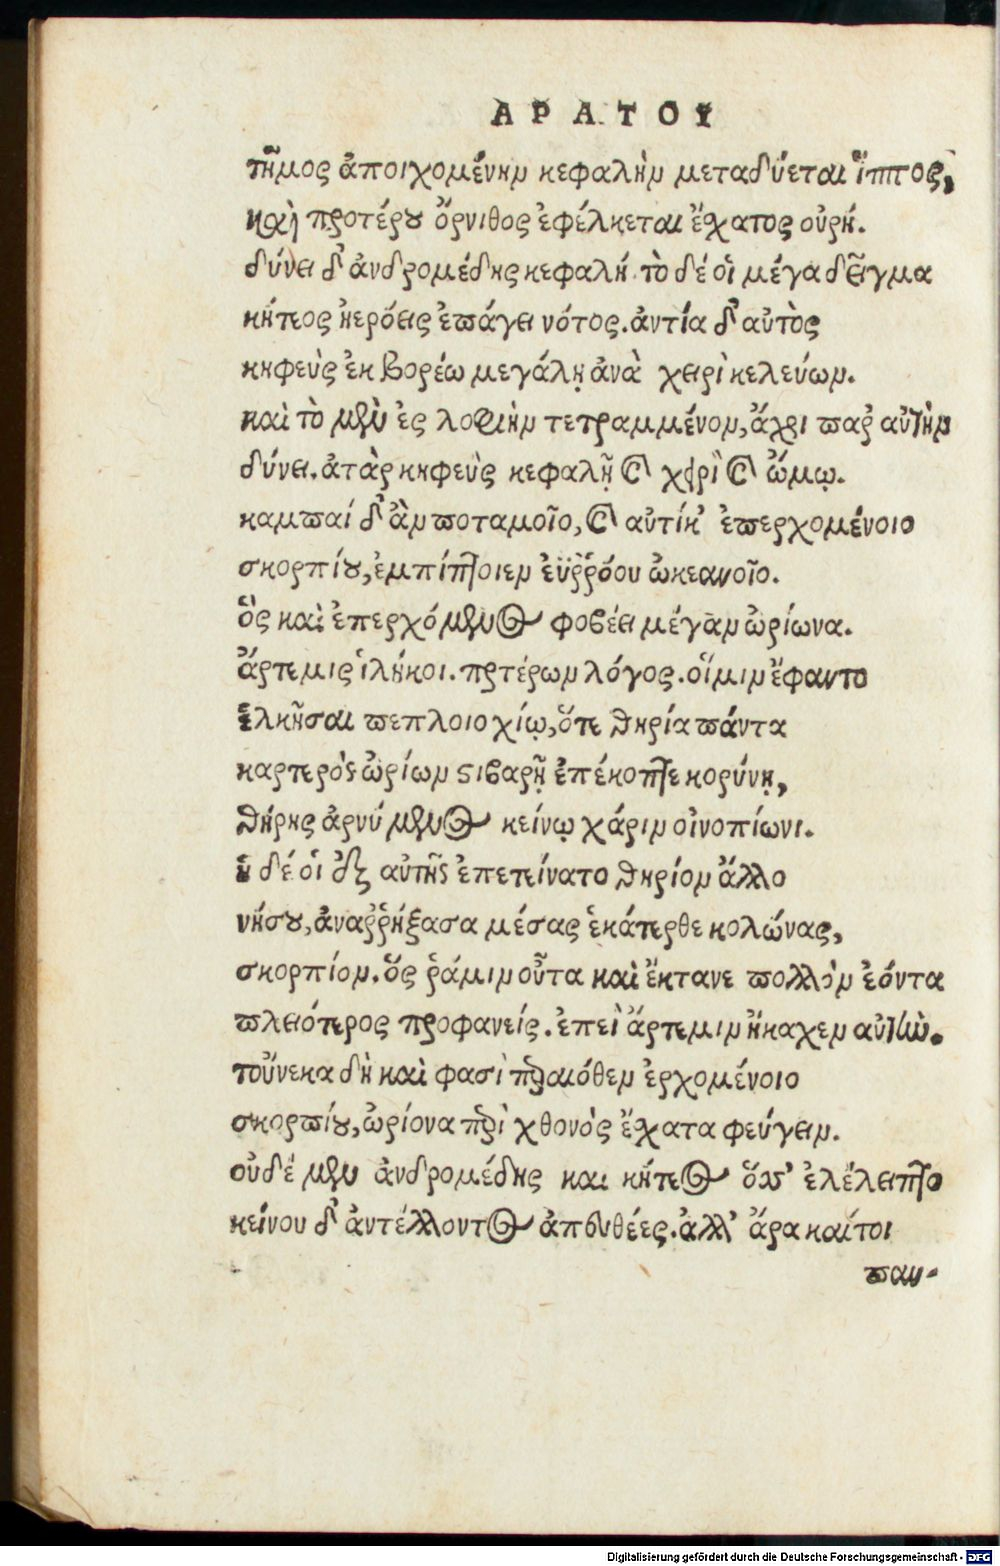 ΑΡΑΤΟΥ
τῆμος ἀποιχομένην κεφαλὴν μεταδύεται ἵππος,
καὶ προτέρου ὄρνιθος ἐφέλκεται ἔσχατος οὐρή.
δύνει δ' ἀνδρομέδης κεφαλή. τὸ δέ οἱ μέγα δεῖγμα
κήτεος ἠερόεις ἐπάγει νότος. ἀντία δ' αὐτὸς
κηφεὺς ἐκ βορέω μεγάλῃ ἀνὰ χειρὶ κελεύων.
καὶ τὸ μὲν ἐς λοφιὴν τετραμμένον, ἄχρι παρ' αὐτὴν
δύνει. ἀτὰρ κηφεὺς κεφαλῇ καὶ χειρὶ καὶ ὤμῳ.
καμπαί δ' ἂν ποταμοῖο, καὶ αὐτίκ' ἐπερχομένοιο
σκορπίου, ἐμπίπτοιεν ἐϋῤῥόου ὠκεανοῖο.
ὃς καὶ ἐπερχόμενος φοβέει μέγαν ὠρίωνα.
ἄρτεμις ἱλήκοι. προτέρων λόγος. οἵ μιν ἔφαντο
ἑλκῆσαι πεπλοιο χίῳ, ὅτε θηρία πάντα
καρτερὸς ὠρίων στιβαρῇ ἐπέκοπτε κορύνῃ,
θήρης ἀρνύμενος κείνῳ χάριν οἰνοπίωνι.
ἡ δέ οἱ ἐξ αὐτῆς ἐπετείνατο θηρίον ἄλλο
νήσου, ἀναῤῥήξασα μέσας ἑκάτερθε κολώνας,
σκορπίον. ὅς ῥά μιν οὖτα καὶ ἔκτανε πολλὸν ἐόντα
πλειότερος προφανείς. ἐπεὶ ἄρτεμιν ἤκαχεν αὐτήν.
τοὔνεκα δὴ καὶ φασὶ περαιόθεν ἐρχομένοιο
σκορπίου, ὠρίονα περὶ χθονὸς ἔσχατα φεύγειν.
οὐδὲ μὲν ἀνδρομέδης και κήτεος ὅσσ' ἐλέλειπτο
κείνου δ' ἀντέλλοντος ἀπευθέες. ἀλλ' ἄρα καίτοι
παν-
Digitalisierung gefördert durch die Deutsche Forschungsgemeinschaft - DFG